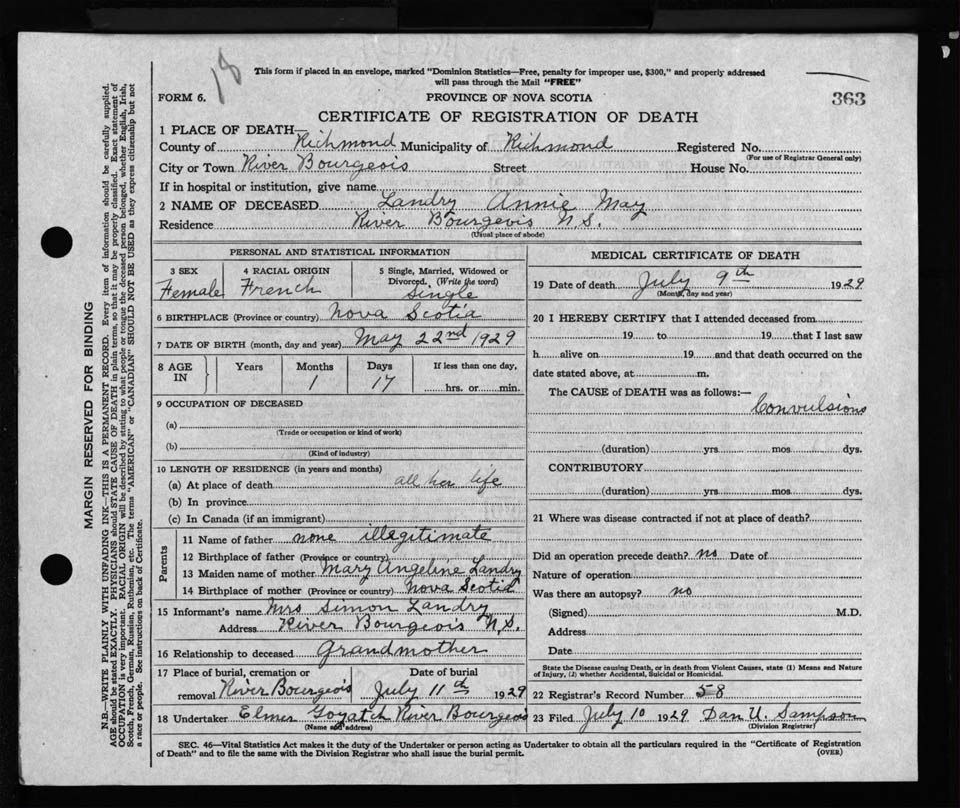 18
This form if placed in an envelope, marked "Dominion Statistics—Free, penalty for improper use, $300," and properly addressed
will pass through the Mail "FREE"
FORM 6. PROVINCE OF NOVA SCOTIA 363
CERTIFICATE OF REGISTRATION OF DEATH
1 PLACE OF DEATH—
County of Richmond Municipality of Richmond Registered No.
(For use of Registrar General only)
City or Town River Bourgeois Street House No.
If in hospital or institution, give name
2 NAME OF DECEASED Landry Annie May
Residence River Bourgeois N.S.
(Usual place of abode)
PERSONAL AND STATISTICAL INFORMATION
3 SEX 4 RACIAL ORIGIN 5 Single, Married, Widowed or
Divorced. (Write the word)
Female French Single
6 BIRTHPLACE (Province or country) Nova Scotia
7 DATE OF BIRTH (month, day and year) May 22nd 1929
8 AGE IN Years Months Days If less than one day,
1 17 hrs. or min.
9 OCCUPATION OF DECEASED
(a)
(Trade or occupation or kind of work)
(b)
(Kind of industry)
10 LENGTH OF RESIDENCE (in years and months)
(a) At place of death all her life
(b) In province
(c) In Canada (if an immigrant)
Parents
11 Name of father none illegitimate
12 Birthplace of father (Province or country)
13 Maiden name of mother Mary Angeline Landry
14 Birthplace of mother (Province or country) Nova Scotia
15 Informant's name Mrs Simon Landry
Address River Bourgeois N.S.
16 Relationship to deceased Grandmother
17 Place of burial, cremation or Date of burial
removal River Bourgeois July 11th 1929
18 Undertaker Elmer Goyatch River Bourgeois
(Name and address)
MEDICAL CERTIFICATE OF DEATH
19 Date of death July 9th 1929
(Month, day and year)
20 I HEREBY CERTIFY that I attended deceased from
19 to 19 that I last saw
h alive on 19 and that death occurred on the
date stated above, at m.
The CAUSE of DEATH was as follows:—
Convulsions
(duration) yrs. mos. dys.
CONTRIBUTORY
(duration) yrs. mos. dys.
21 Where was disease contracted if not at place of death?
Did an operation precede death? no Date of
Nature of operation
Was there an autopsy? no
(Signed) M.D.
Address
Date
State the Disease causing Death, or in death from Violent Causes, state (1) Means and Nature
of Injury, (2) whether Accidental, Suicidal or Homicidal.
22 Registrar's Record Number 58
23 Filed July 10 1929 Dan U. Sampson
(Division Registrar)
SEC. 46—Vital Statistics Act makes it the duty of the Undertaker or person acting as Undertaker to obtain all the particulars required in the "Certificate of Registration
of Death" and to file the same with the Division Registrar who shall issue the burial permit. (OVER)
MARGIN RESERVED FOR BINDING
N.B.—WRITE PLAINLY WITH UNFADING INK—THIS IS A PERMANENT RECORD. Every item of information should be carefully supplied.
AGE should be stated EXACTLY. PHYSICIANS should STATE CAUSE OF DEATH in plain terms, so that it may be properly classified. Exact statement of
OCCUPATION is very important. RACIAL ORIGIN will be described by stating to what people or tongue the deceased person belonged, whether English, Irish,
Scotch, French, German, Russian, Ruthenian, etc. The terms "AMERICAN" or "CANADIAN" SHOULD NOT BE USED as they express citizenship but not
a race or people. See instructions on back of Certificate.